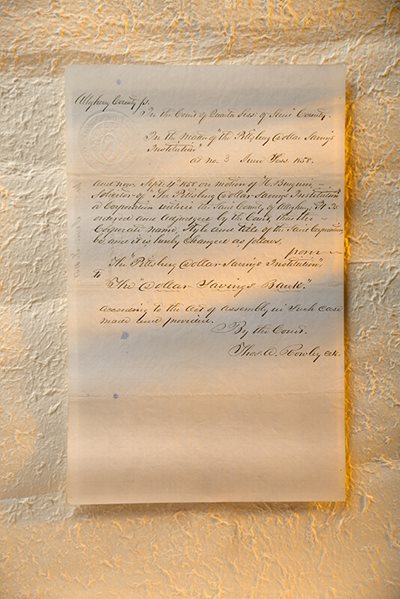 Allegheny County ss.
In the Court of Quarter Sess of said County.
In the Matter of "the Pittsburg Dollar Savings
Institution"
at no. 3 June Sess. 1858.
And now Sept. 1858 on motion of H. Burgwin
Solicitor of "The Pittsburg Dollar Savings Institution"
a Corporation within the said County of Allegheny, It is
ordered and adjudged by the Court, that the
Corporate name, Style and title of the said Corporation
be, and it is hereby Changed as follows.
from
The "Pittsburg Dollar Savings Institution",
to
The "Dollar Savings Bank".
according to the Act of Assembly in such case
made and provided.
By the Court.
Thos. A. Rowley Clk.